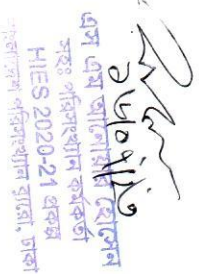 এস এম আনোয়ার হোসেন
সহঃ পরিসংখ্যান কর্মকর্তা
HIES 2020-21 প্রকল্প
বাংলাদেশ পরিসংখ্যান ব্যুরো, ঢাকা